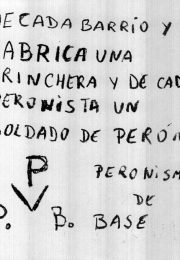 DE CADA BARRIO Y
FABRICA UNA
TRINCHERA Y DE CAD
PERONISTA UN
SOLDADO DE PERÓN
P
V
P. B.
PERONISM
DE
BASE